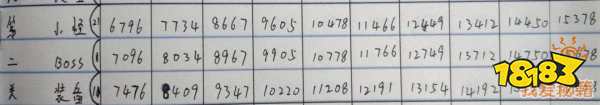 第 小怪 (21) 6796 7734 8667 9605 10478 11466 12449 13412 14450 15378
二 BOSS 7096 8034 8967 9905 10778 11766 12749 13712 14750
关 装备 7476 8409 9347 10220 11208 12191 13154 14192
18183